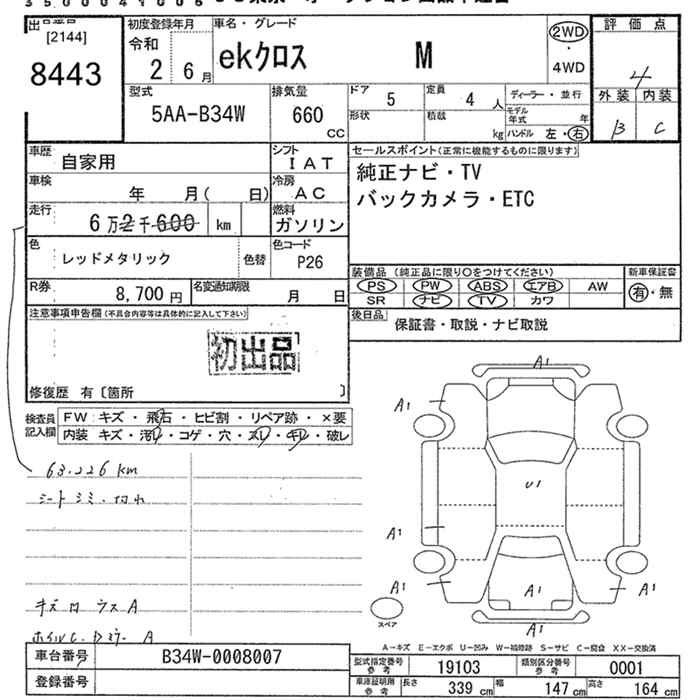 出品番号 [2144]
8443
初度登録年月
令和 2 6月
車名・グレード
ekクロス M
2WD・4WD
評価点
4
外装 内装
B C
型式
5AA-B34W
排気量
660 CC
ドア 5
定員 4 人
形状
積載 kg
ディーラー・並行
モデル年式 年
ハンドル 左・右
車歴 自家用
シフト IAT
車検 年 月( 日)
冷房 AC
走行 6万2千600 km
燃料 ガソリン
色 レッドメタリック 色替
色コード P26
R券 8,700円
名変通知期限 月 日
セールスポイント(正常に機能するものに限ります)
純正ナビ・TV
バックカメラ・ETC
装備品 (純正品に限り○をつけてください)
PS PW ABS エアB AW
SR ナビ TV カワ
新車保証書
有・無
後日品 保証書・取説・ナビ取説
注意事項申告欄(不具合内容等は具体的に記入して下さい)
初出品
修復歴 有〔箇所 〕
検査員記入欄
FW:キズ・飛石・ヒビ割・リペア跡・×要
内装 キズ・汚レ・コゲ・穴・スレ・キレ・破レ
63.226 km
シートシミ・切れ
キズ 凹 ウス A
A1
A1
A1
U1
A1
A1
A1
A1
A1
A1
スペア
A-キズ E-エクボ U-凹み W-補修跡 S-サビ C-腐食 XX-交換済
車台番号 B34W-0008007
登録番号
型式指定番号 参考 19103
類別区分番号 参考 0001
車庫証明用 参考 長さ 339 cm 幅 147 cm 高さ 164 cm